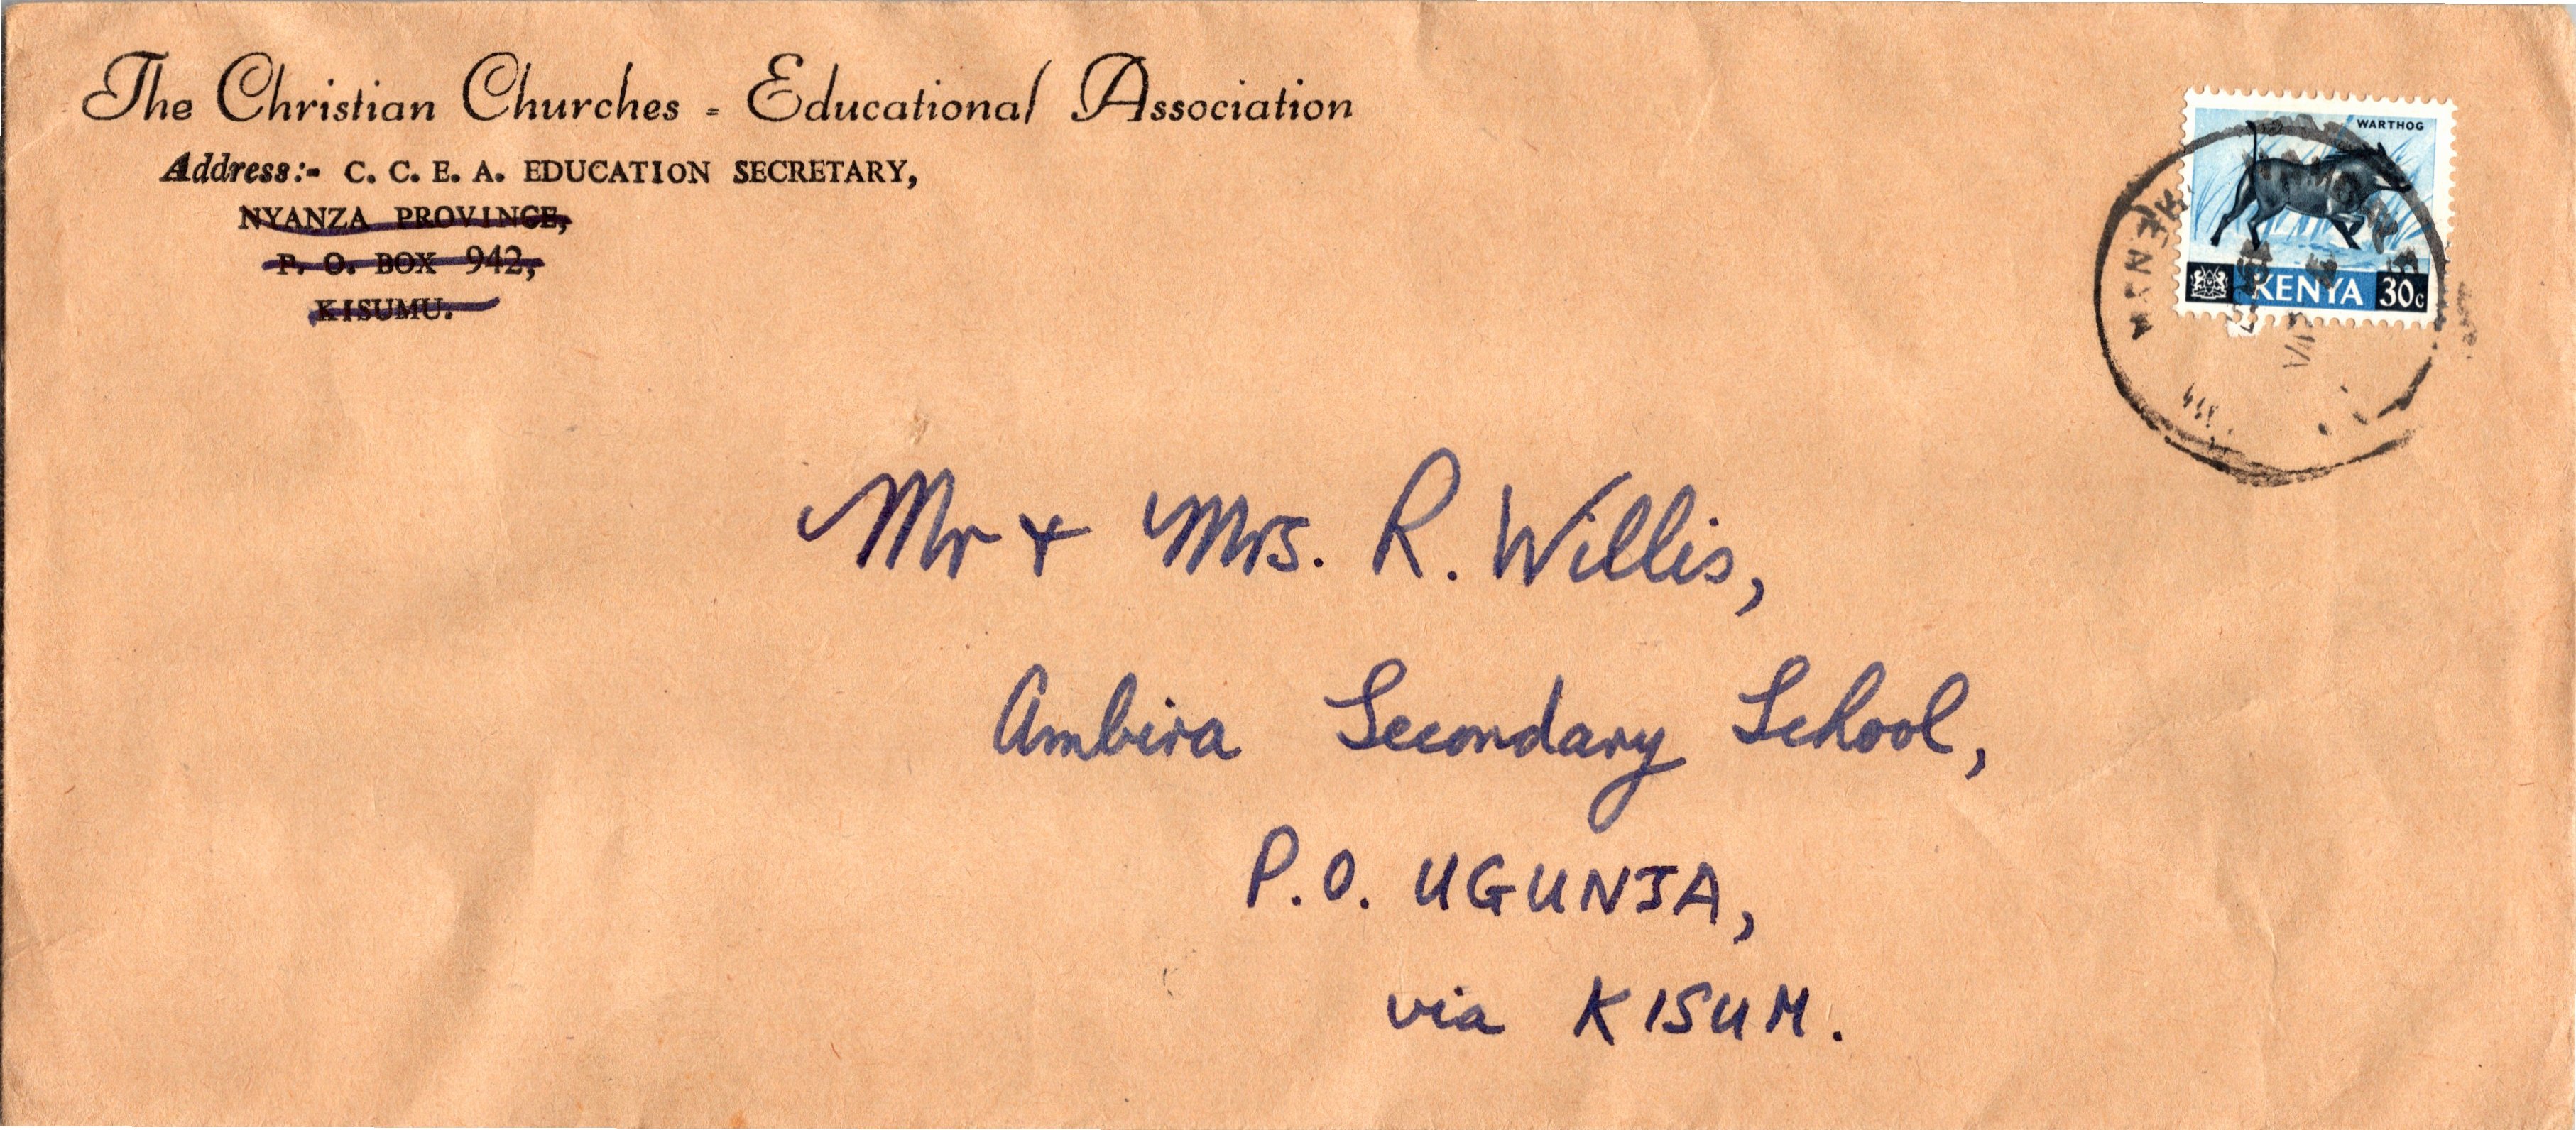 The Christian Churches - Educational Association
Address:- C. C. E. A. EDUCATION SECRETARY,
NYANZA PROVINCE,
P. O. BOX 942,
KISUMU.
WARTHOG
KENYA 30c
KENYA
Mr + Mrs. R. Willis,
Ambira Secondary School,
P.O. UGUNJA,
via KISUM.